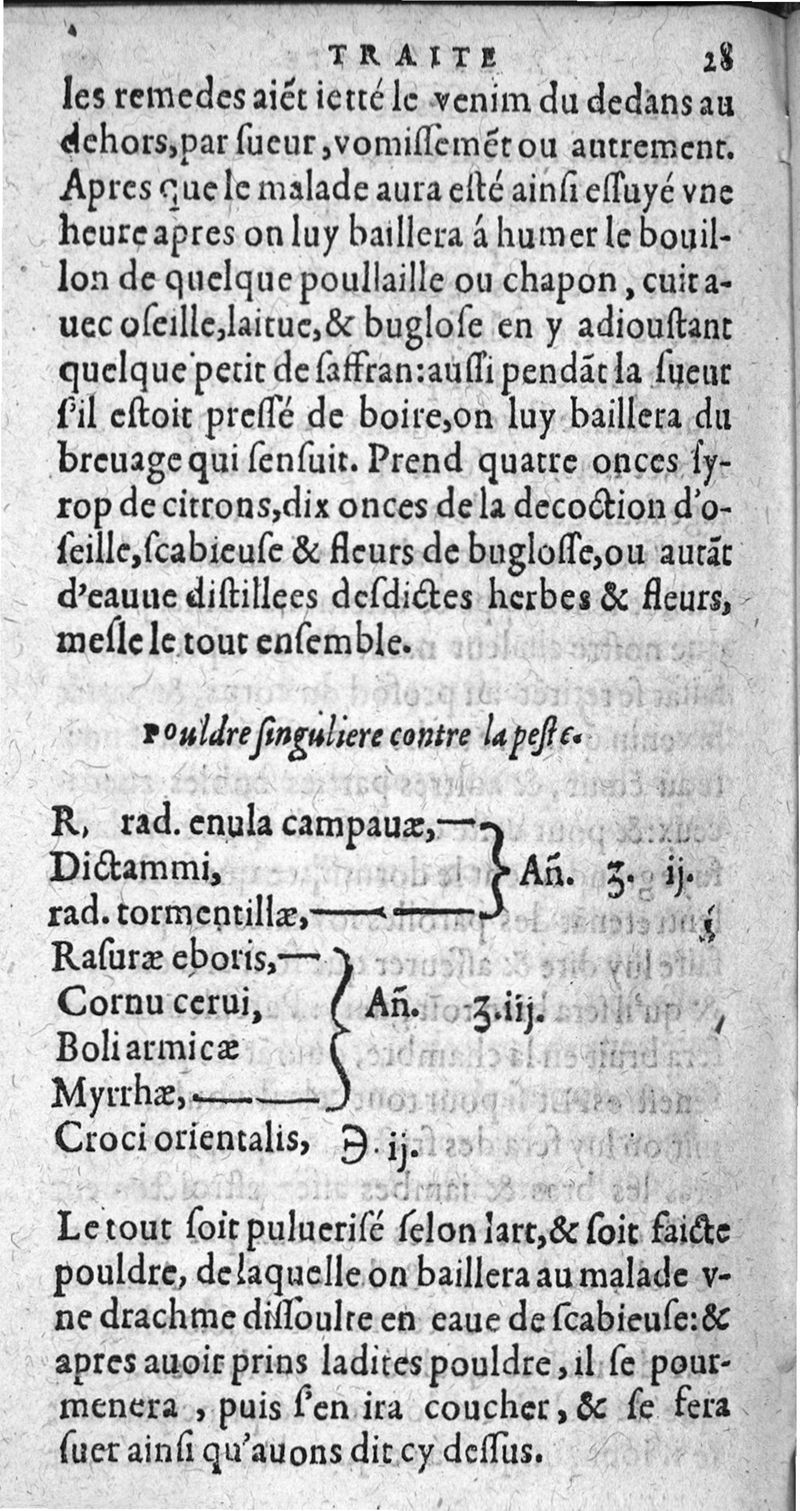 TRAITE 28
les remedes aiẽt ietté le venim du dedans au
dehors,par ſueur,vomiſſemẽt ou autrement.
Apres que le malade aura eſté ainſi eſſuyé vne
heure apres on luy baillera á humer le bouil-
lon de quelque poullaille ou chapon, cuit a-
uec oſeille,laitue,& bugloſe en y adiouſtant
quelque petit de ſaffran:auſſi pendãt la ſueur
ſ'il eſtoit preſſé de boire,on luy baillera du
breuage qui ſenſuit. Prend quatre onces ſy-
rop de citrons,dix onces de la decoction d'o-
ſeille,ſcabieuſe & fleurs de bugloſſe,ou autãt
d'eauue diſtillees deſdictes herbes & fleurs,
meſle le tout enſemble.
Pouldre ſinguliere contre la peſte.
R, rad. enula campauæ,
Dictammi, Añ. ʒ. ij.
rad. tormentillæ,
Raſuræ eboris,
Cornu cerui, Añ. ʒ.iij.
Boli armicæ
Myrrhæ,
Croci orientalis, ℈. ij.
Le tout ſoit puluerisé ſelon lart,& ſoit faicte
pouldre, de laquelle on baillera au malade v-
ne drachme diſſoulte en eaue de ſcabieuſe:&
apres auoir prins ladites pouldre, il ſe pour-
menera , puis ſ'en ira coucher, & ſe fera
ſuer ainſi qu'auons dit cy deſſus.